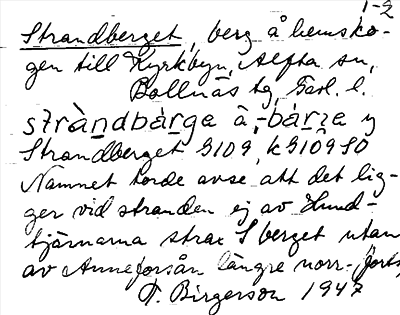 1-2
Strandberget, berg å hemsko-
gen till Kyrkbyn, Alfta sn,
Bollnäs tg, Gävl. l.
stràndbàrga â, -bárɟa y
Strandberget G109, kG109 SO
Namnet torde avse att det lig-
ger vid stranden ej av Hund-
tjärnarna strax S berget utan
av Anneforsån längre norr-
T. Birgerson 1947